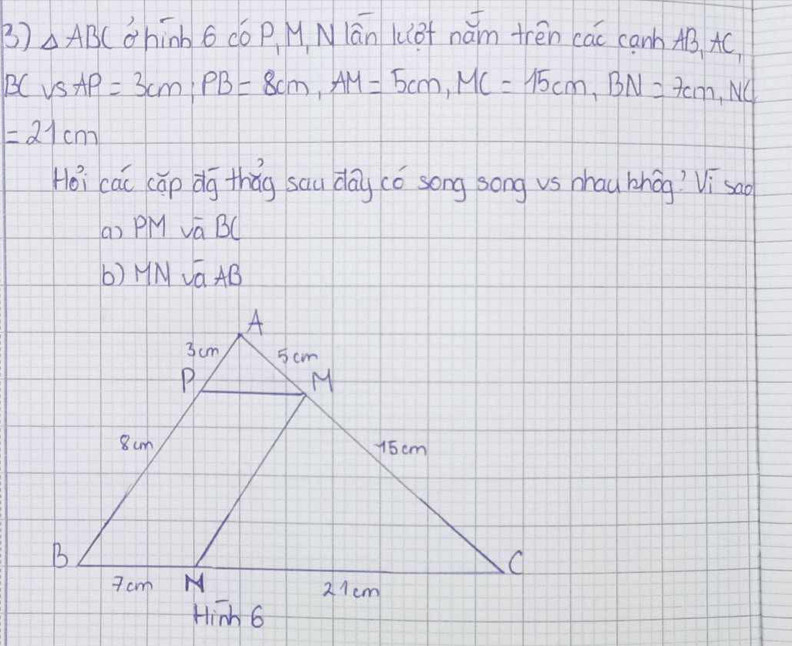 3) △ ABC ở hình 6 có P, M, N lần lượt nằm trên các cạnh AB, AC,
BC vs AP = 3cm, PB = 8cm, AM = 5cm, MC = 15cm, BN = 7cm, NC
= 21cm
Hỏi các cặp đg thẳg sau đây có song song vs nhau khôg? Vì sao
a) PM và BC
b) MN và AB
A
3cm
5cm
P
M
8cm
15cm
B
C
7cm
N
21cm
Hình 6